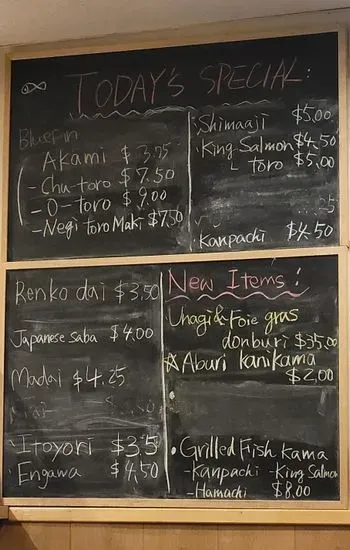 TODAY'S SPECIAL:
Bluefin
Akami $3.75
- Chu-toro $7.50
- O-toro $9.00
- Negi toro Maki $7.50
Shimaaji $5.00
King Salmon $4.50
toro $5.00
Kanpachi $4.50
Renko dai $3.50
Japanese saba $4.00
Madai $4.25
Itoyori $3.5
Engawa $4.50
New Items:
Unagi & Foie gras
donburi $35.00
☆ Aburi kanikama
$2.00
• Grilled Fish kama
- Kanpachi - King Salmon
- Hamachi $8.00